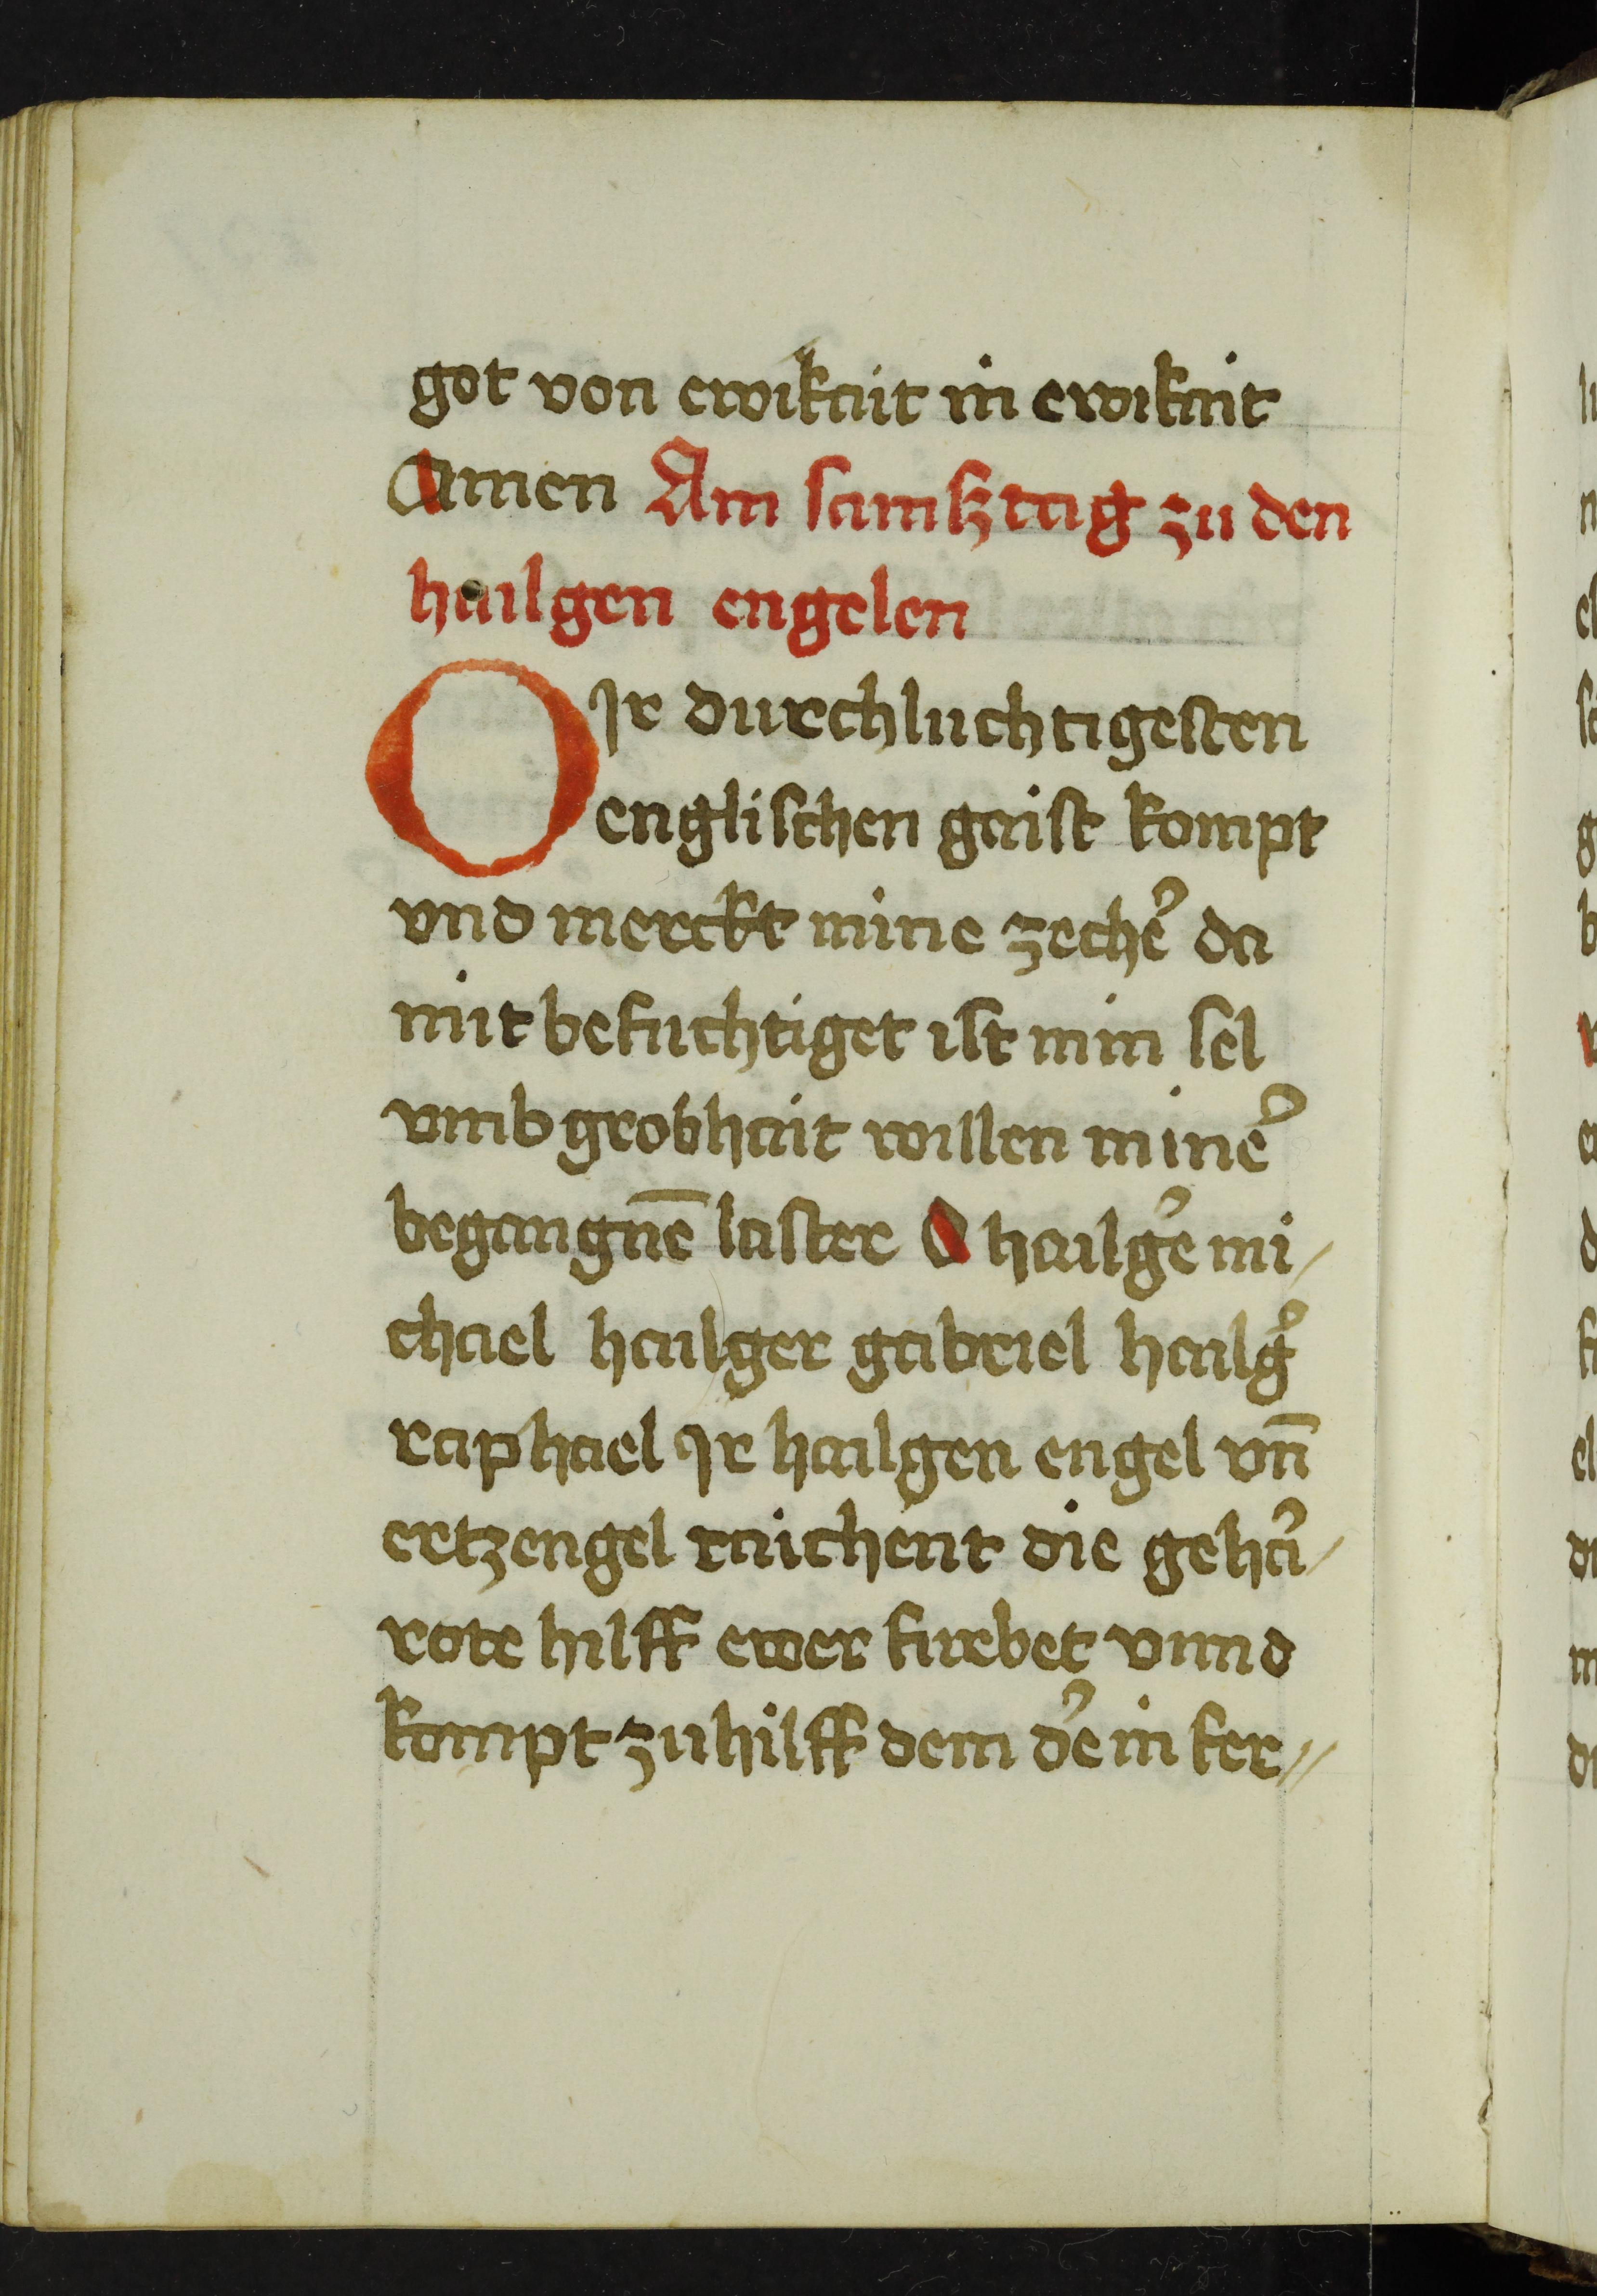 got von ewikait in ewikait
Amen Am samſztag zu den
hailgen engelen
O Jr durchluchtigeſten
engliſchen gaiſt kompt
vnd merckt mine zecheꝛ̉ da
mit befuchtiget iſt min ſel
vmb grobhait willen mine᷑
begangnē laſter O hailge᷑ mi/
chael hailger gabriel hailg᷑
raphael Jr hailgen engel vn̄
ertzengel raichent die geha᷑/
rote hilff ewer furbet vnnd
kompt zu hilff dem de᷑ in ker//